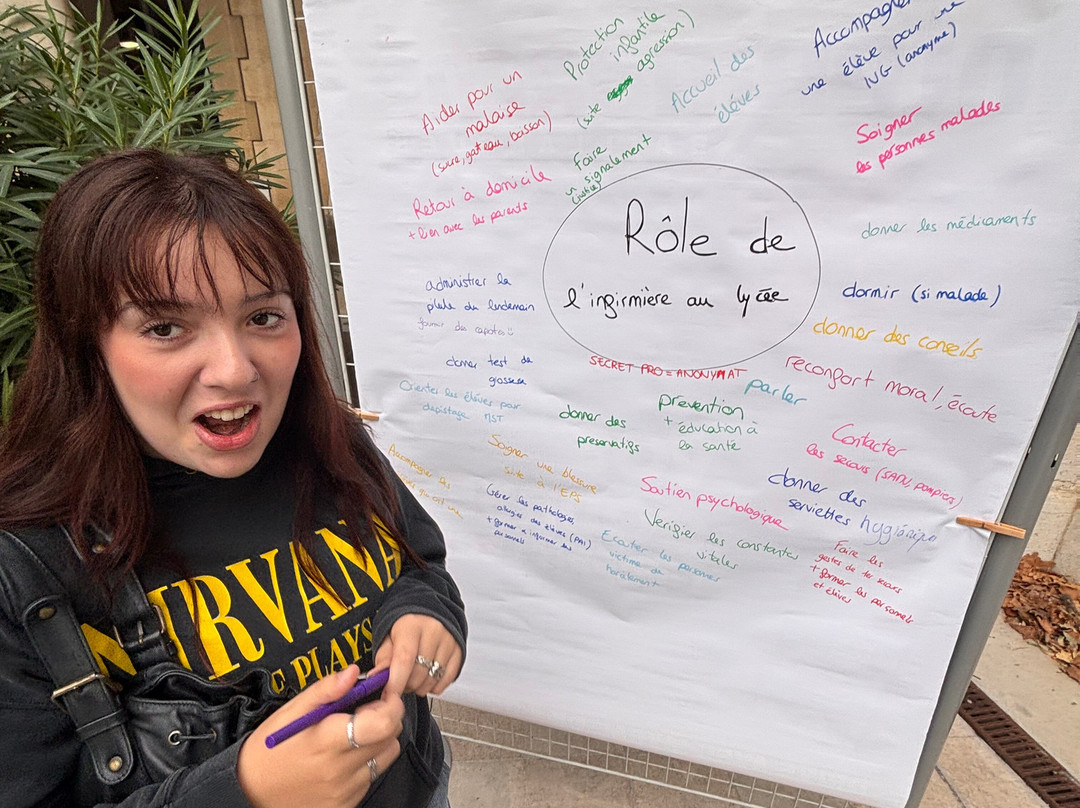 Rôle de
l'infirmière au lycée
SECRET PRO = ANONYMAT
Protection
infantile
(suite agression)
Accueil des
élèves
Accompagner
une élève pour une
IVG (anonyme)
Aider pour un
malaise
(sucre, gateau, boisson)
Faire
un signalement
(justice)
Soigner
les personnes malades
Retour à domicile
+ lien avec les parents
donner les médicaments
administrer la
pilule du lendemain
fournir des capotes
dormir (si malade)
donner des conseils
donner test de
grossesse
reconfort moral, écoute
parler
Orienter les élèves pour
depistage MST
donner des
preservatifs
prevention
+ éducation à
la santé
Contacter
les secours (SAMU, pompiers)
Accompagner les
Soigner une blessure
suite à l'EPS
Soutien psychologique
donner des
serviettes hygiénique
Gérer les pathologies
des élèves (PAI)
+ former & informer les
personnels
Verifier les constantes
vitales
Ecouter les personnes
victime de
harcèlement
Faire les
gestes de 1er secours
+ former les personnels
et élèves
NIRVANA
PLAYS